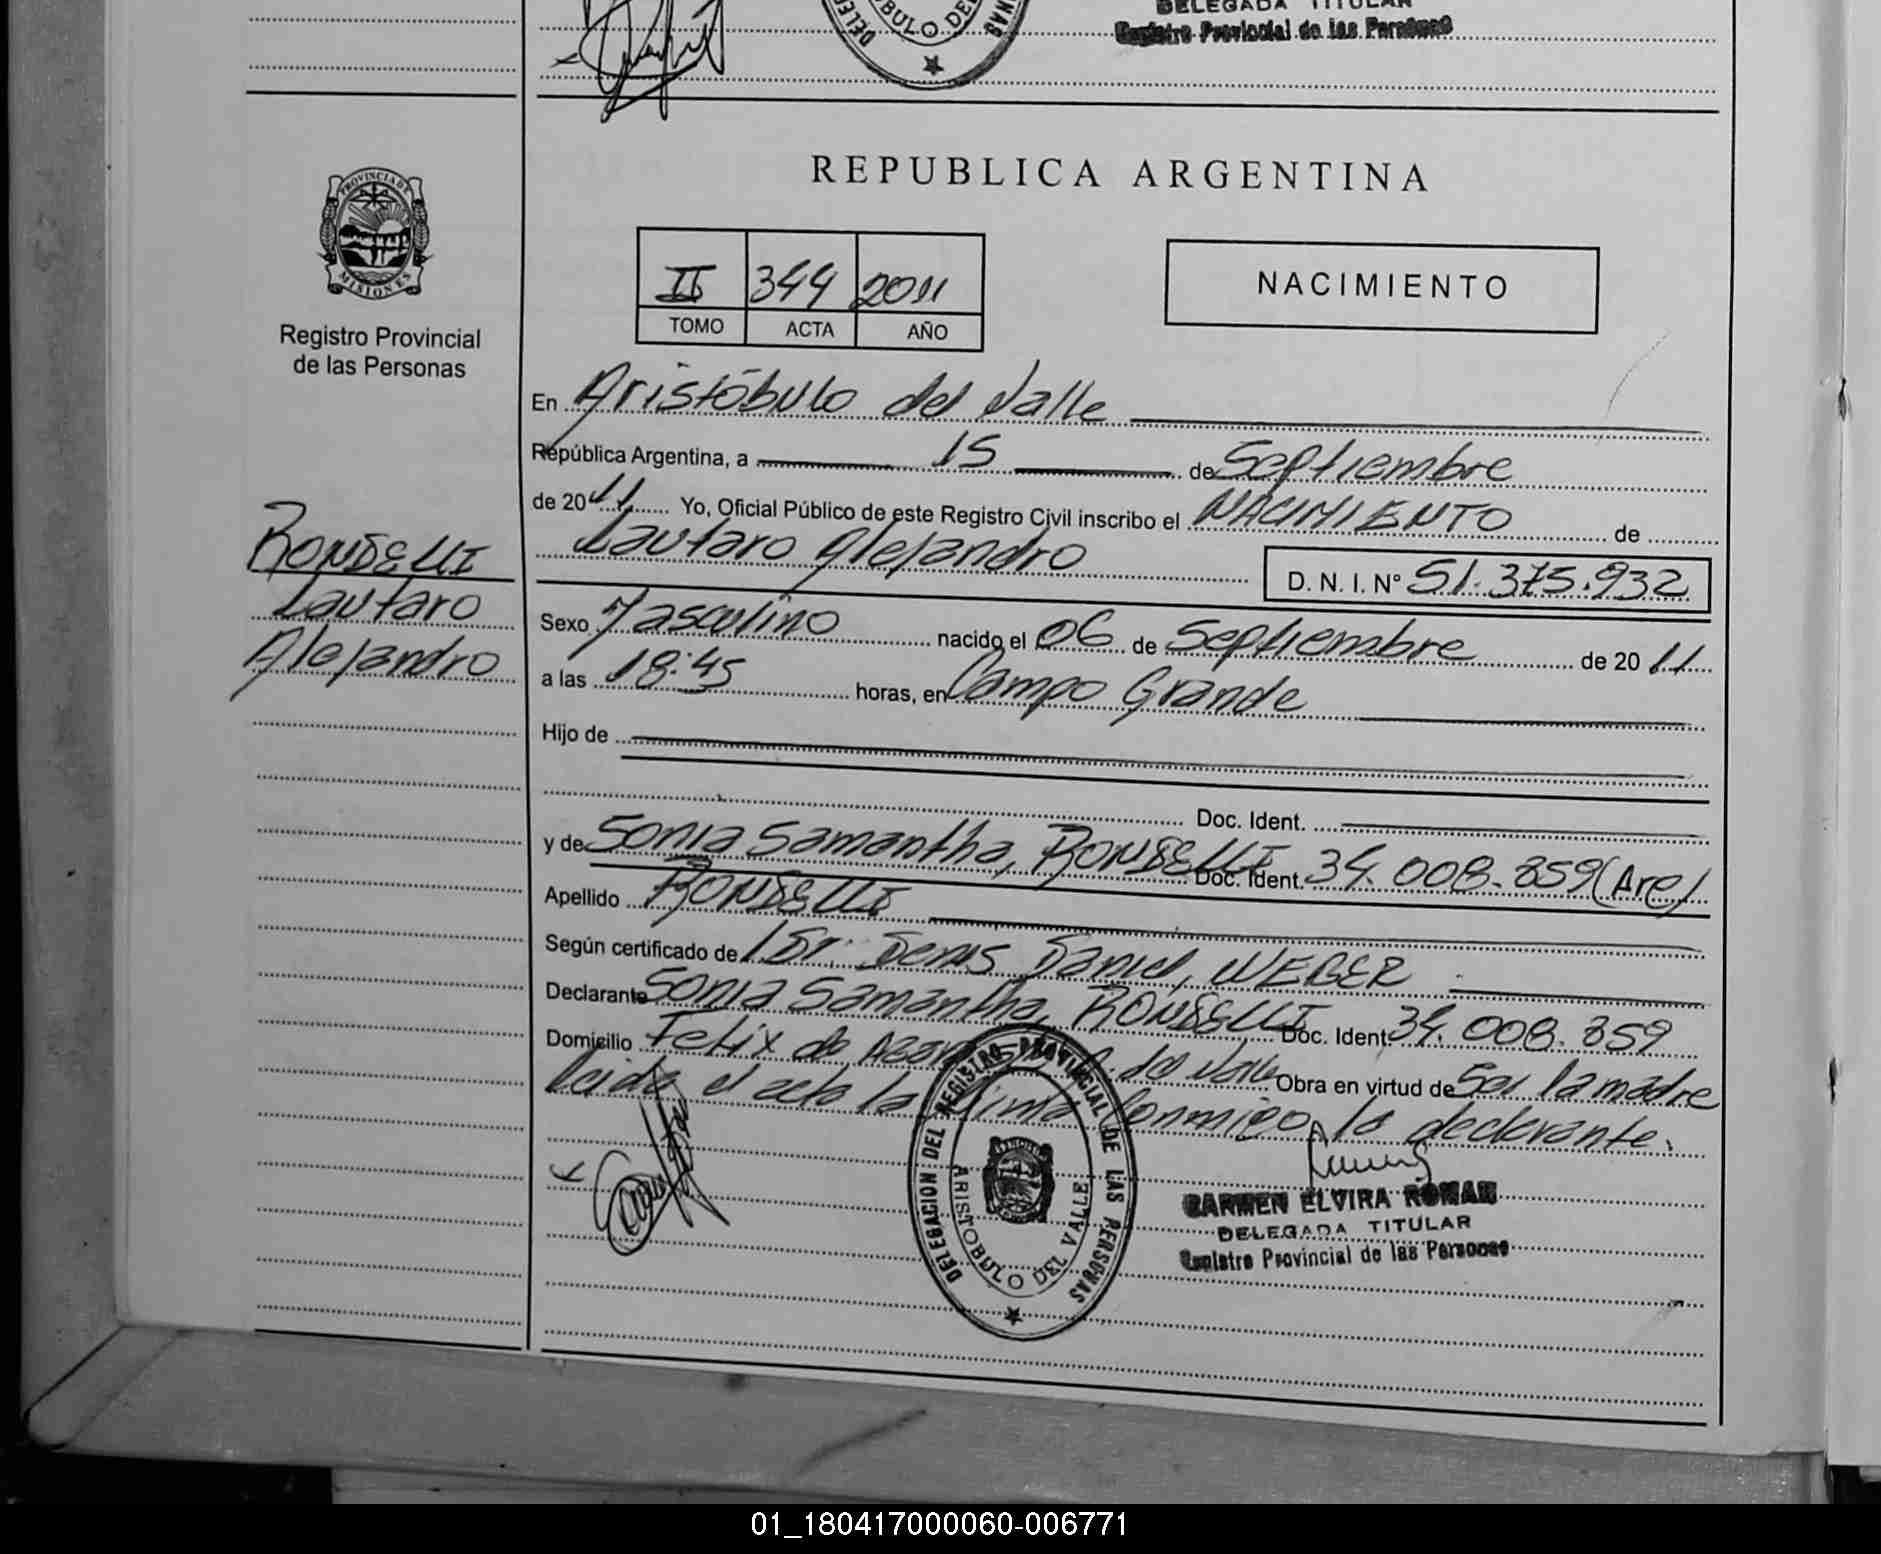 DELEGADA TITULAR
Registro Provincial de las Personas
PROVINCIA DE MISIONES
Registro Provincial
de las Personas
REPUBLICA ARGENTINA
II 344 2011
TOMO ACTA AÑO
NACIMIENTO
En Aristóbulo del Valle
República Argentina, a 15 de Septiembre
de 2011 Yo, Oficial Público de este Registro Civil inscribo el NACIMIENTO de
Lautaro Alejandro
D. N. I. N° 51.375.932
RONDELLI
Lautaro
Alejandro
Sexo Masculino nacido el 06 de Septiembre de 2011
a las 18:45 horas, en Campo Grande
Hijo de
Doc. Ident.
y de Sonia Samantha, RONDELLI Doc. Ident. 34.008.859 (Arg)
Apellido RONDELLI
Según certificado de Dr. Denis Daniel, WEBER
Declarante Sonia Samantha, RONDELLI Doc. Ident. 34.008.859
Domicilio Felix de Azara A. del Valle Obra en virtud de Ser la madre
Leida el acta la firma conmigo la declarante.
DELEGACION DEL REGISTRO PROVINCIAL DE LAS PERSONAS
ARISTOBULO DEL VALLE
CARMEN ELVIRA ROMAN
DELEGADA TITULAR
Registro Provincial de las Personas
01_180417000060-006771